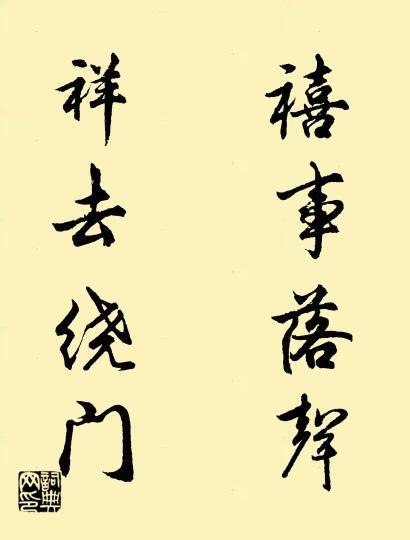 禧事落聲
祥去绕门
詞典网印